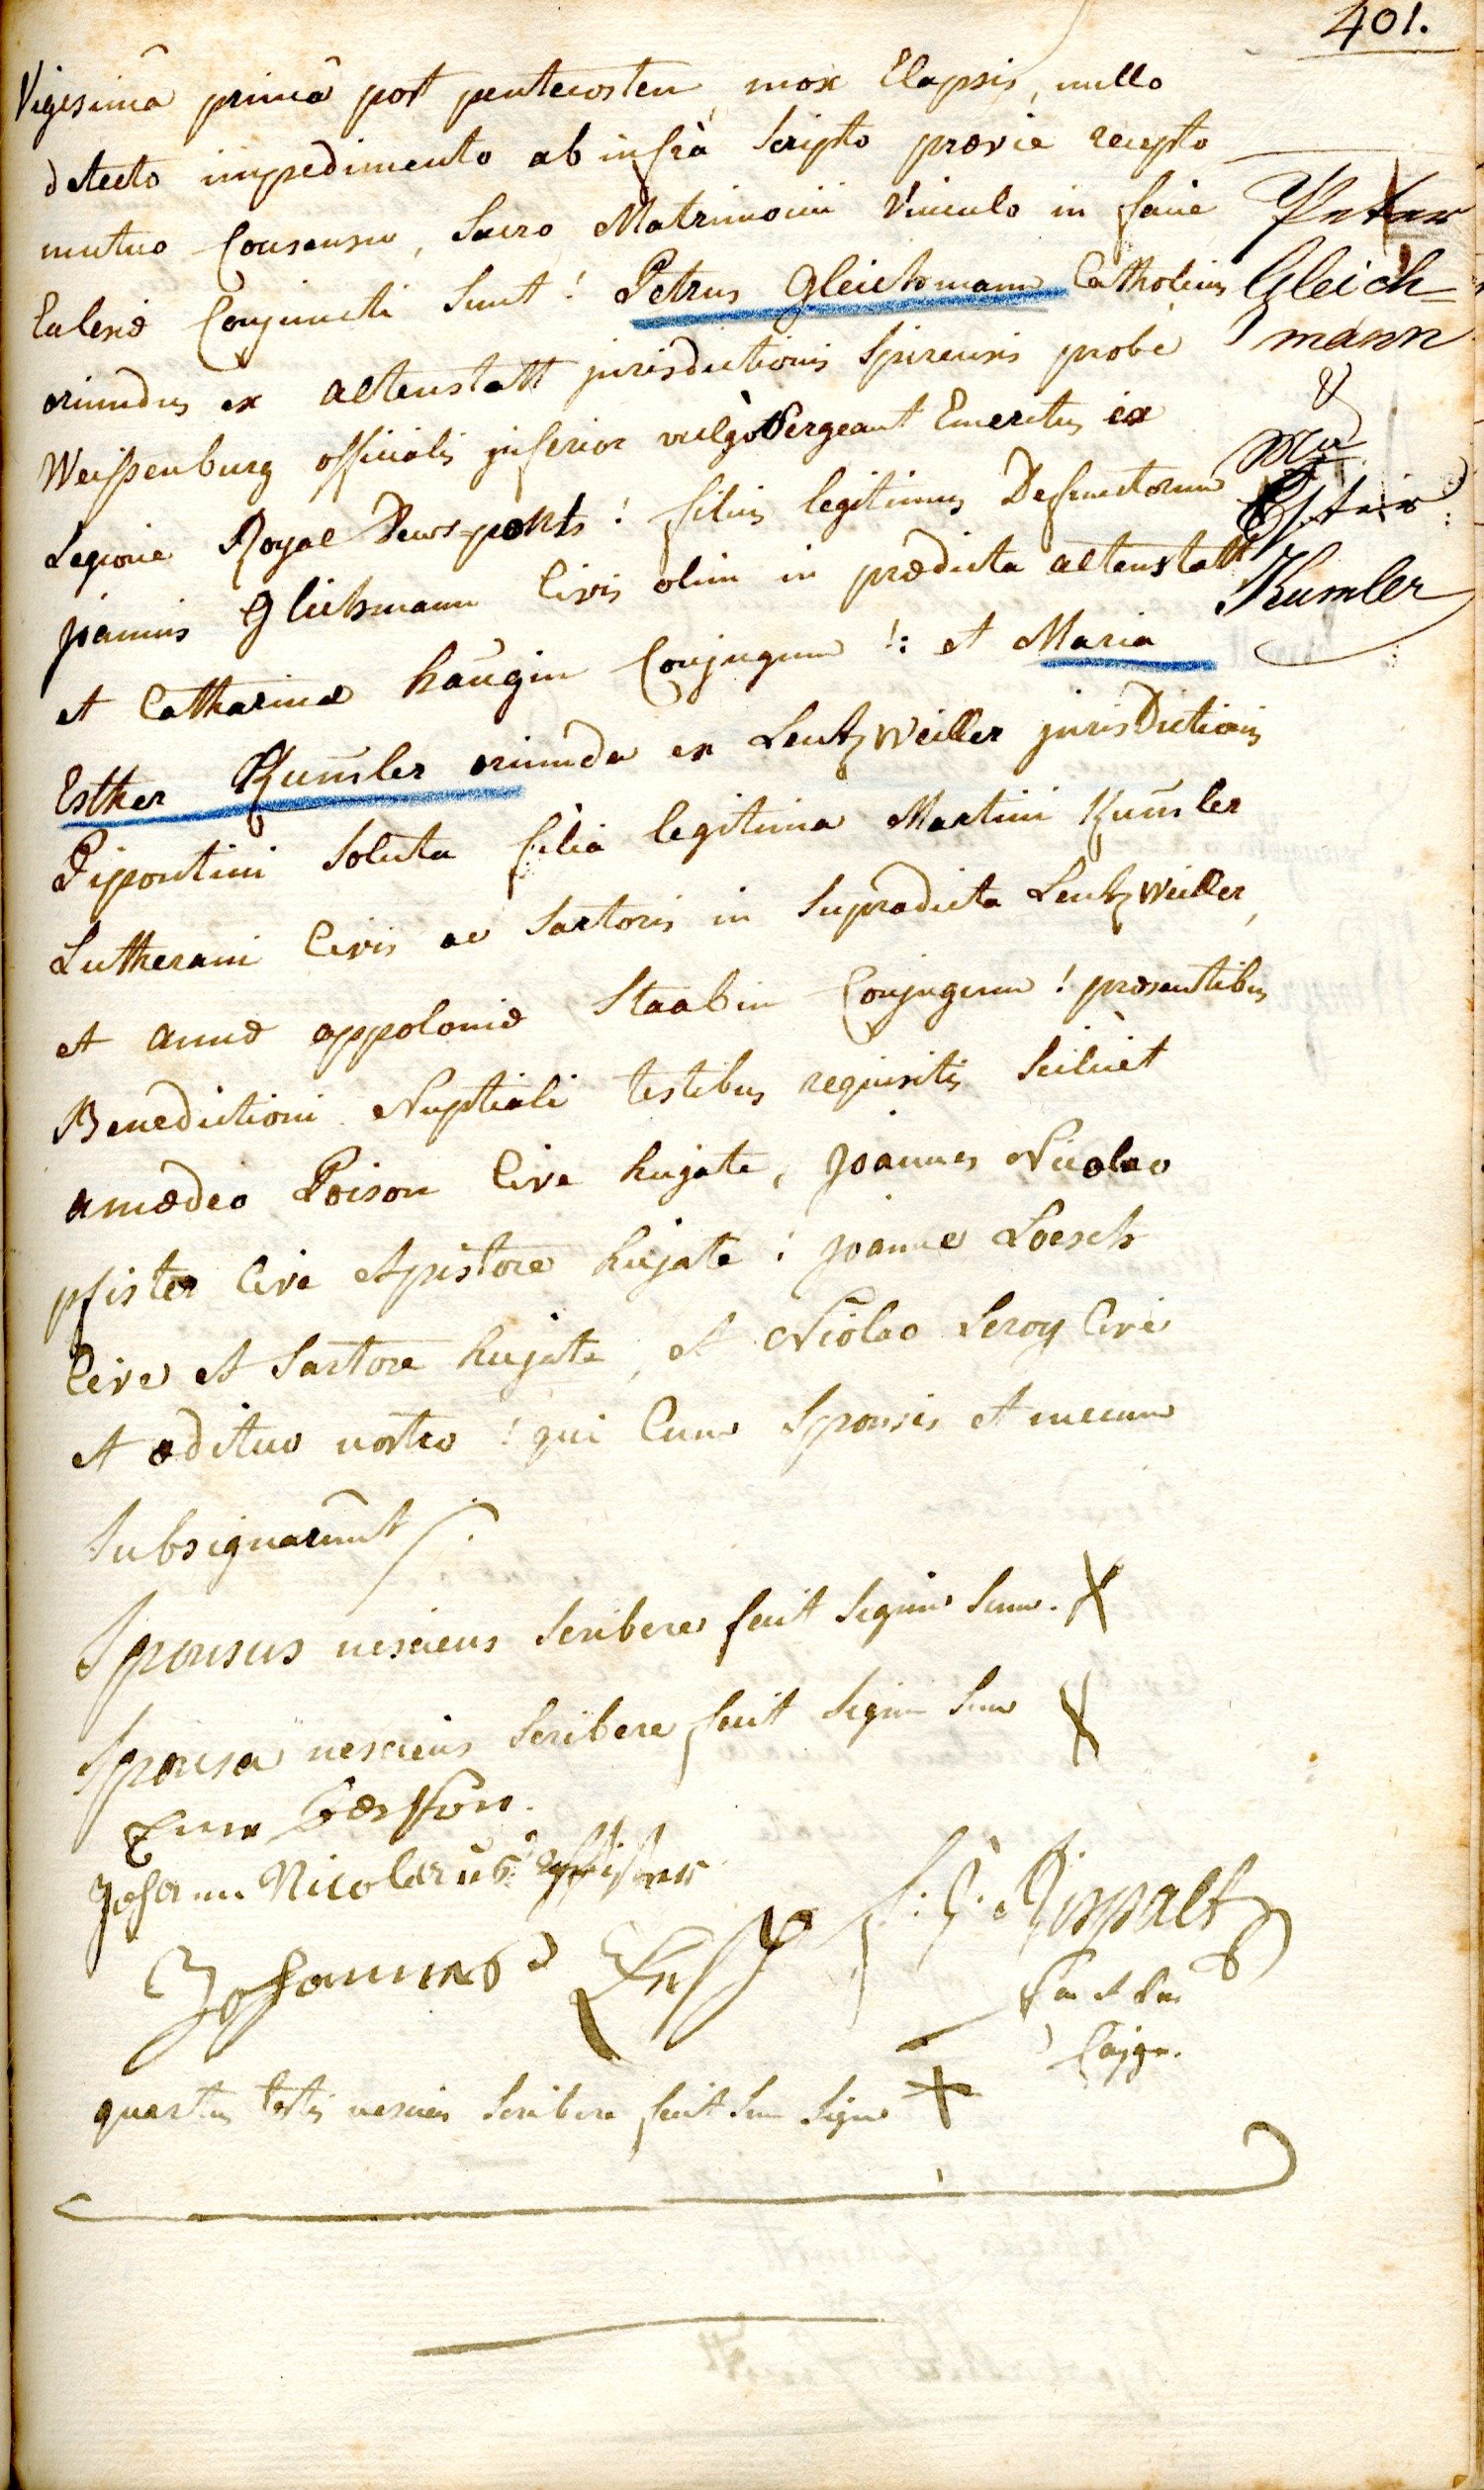 401.
Vigesimâ primâ post pentecosten, mox Elapsis, nullo
detecto impedimento ab infrà Scripto prævie recepto
mutuo Consensu, Sacro Matrimonii Vinculo in facie
Eclesiæ Conjuncti Sunt: Petrus Gleichmann Catholicus
oriundus ex altenstatt jurisdictionis Spirensis probè
Weissenburg officialis inferior vulgò Sergeant Emeritus ex
Legione Royal Deux-ponts: filius legitimus Defunctorum
joannis Gleichmann Civis olim in prædicta altenstatt
et Catharinæ haugin Conjugum!: et Maria
Esther Kum̄ler oriunda ex LeutzWeiller jurisDictionis
Bipontini Soluta filia legitima Martini Kum̄ler
Lutherani Civis ac Sartoris in Supradicta LeutzWeiller,
et annæ appoloniæ Staabin Conjugum! præsentibus
Benedictioni Nuptiali testibus requisitis Scilicet
amædeo Poison Cive hujate, joannes Nicolao
pfister Cive et pistore hujate: joanne Loesch
Cive et Sartore hujate, et Niolao Leroy Cive
et ædituo nostro: qui Cum Sponsis et mecum
Subsignarunt
Sponsus nesciens Scribere fecit Signum Suum. X
Sponsa nesciens Scribere fecit Signum Suum X
Johann Nicolaus pfister
Johannes
quartus testis nesciens Scribere fecit Suum Signum X
Peter
Gleich=
mann
&
Ma
Ester
Kumler